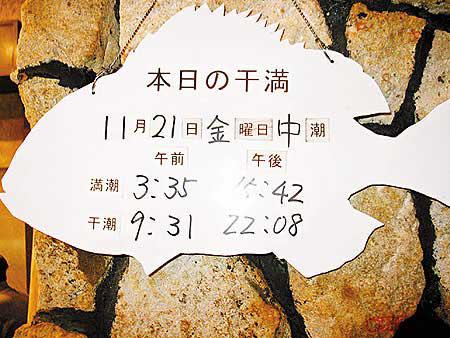 本日の干満
11月21日金曜日中潮
午前 午後
満潮 3:35 :42
干潮 9:31 22:08